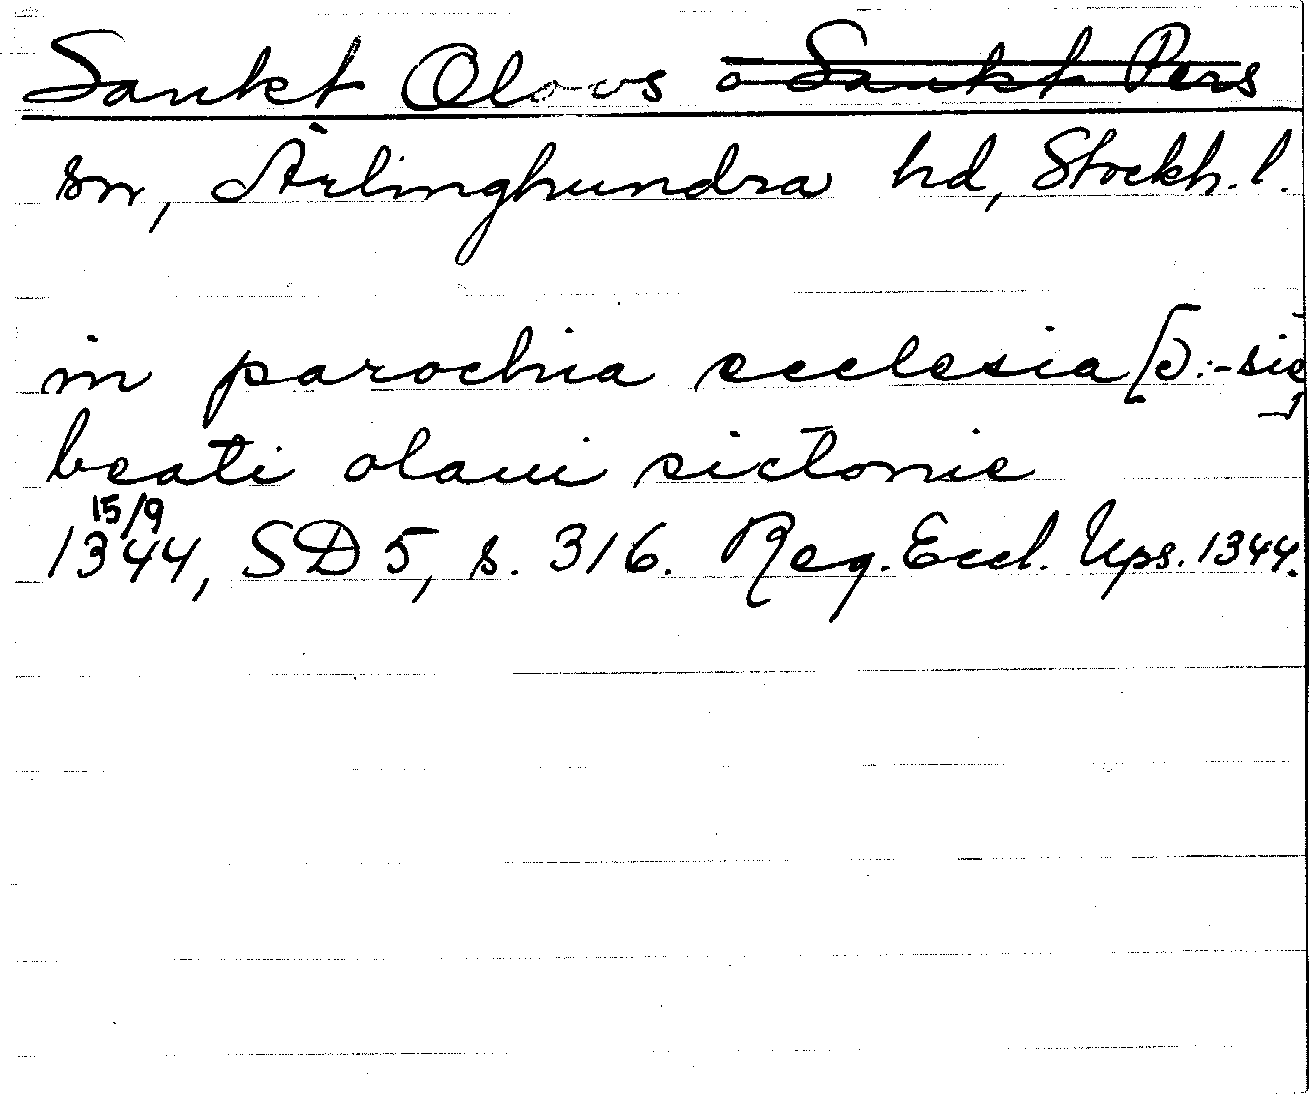 Sankt Olovs o Sankt Pers
sn, Ärlinghundra hd, Stockh. l.
in parochia ecclesia [ɔ:-sie]
beati olaui sictonie
15/9
1344, SD 5, s. 316. Reg. Eccl. Ups. 1344.